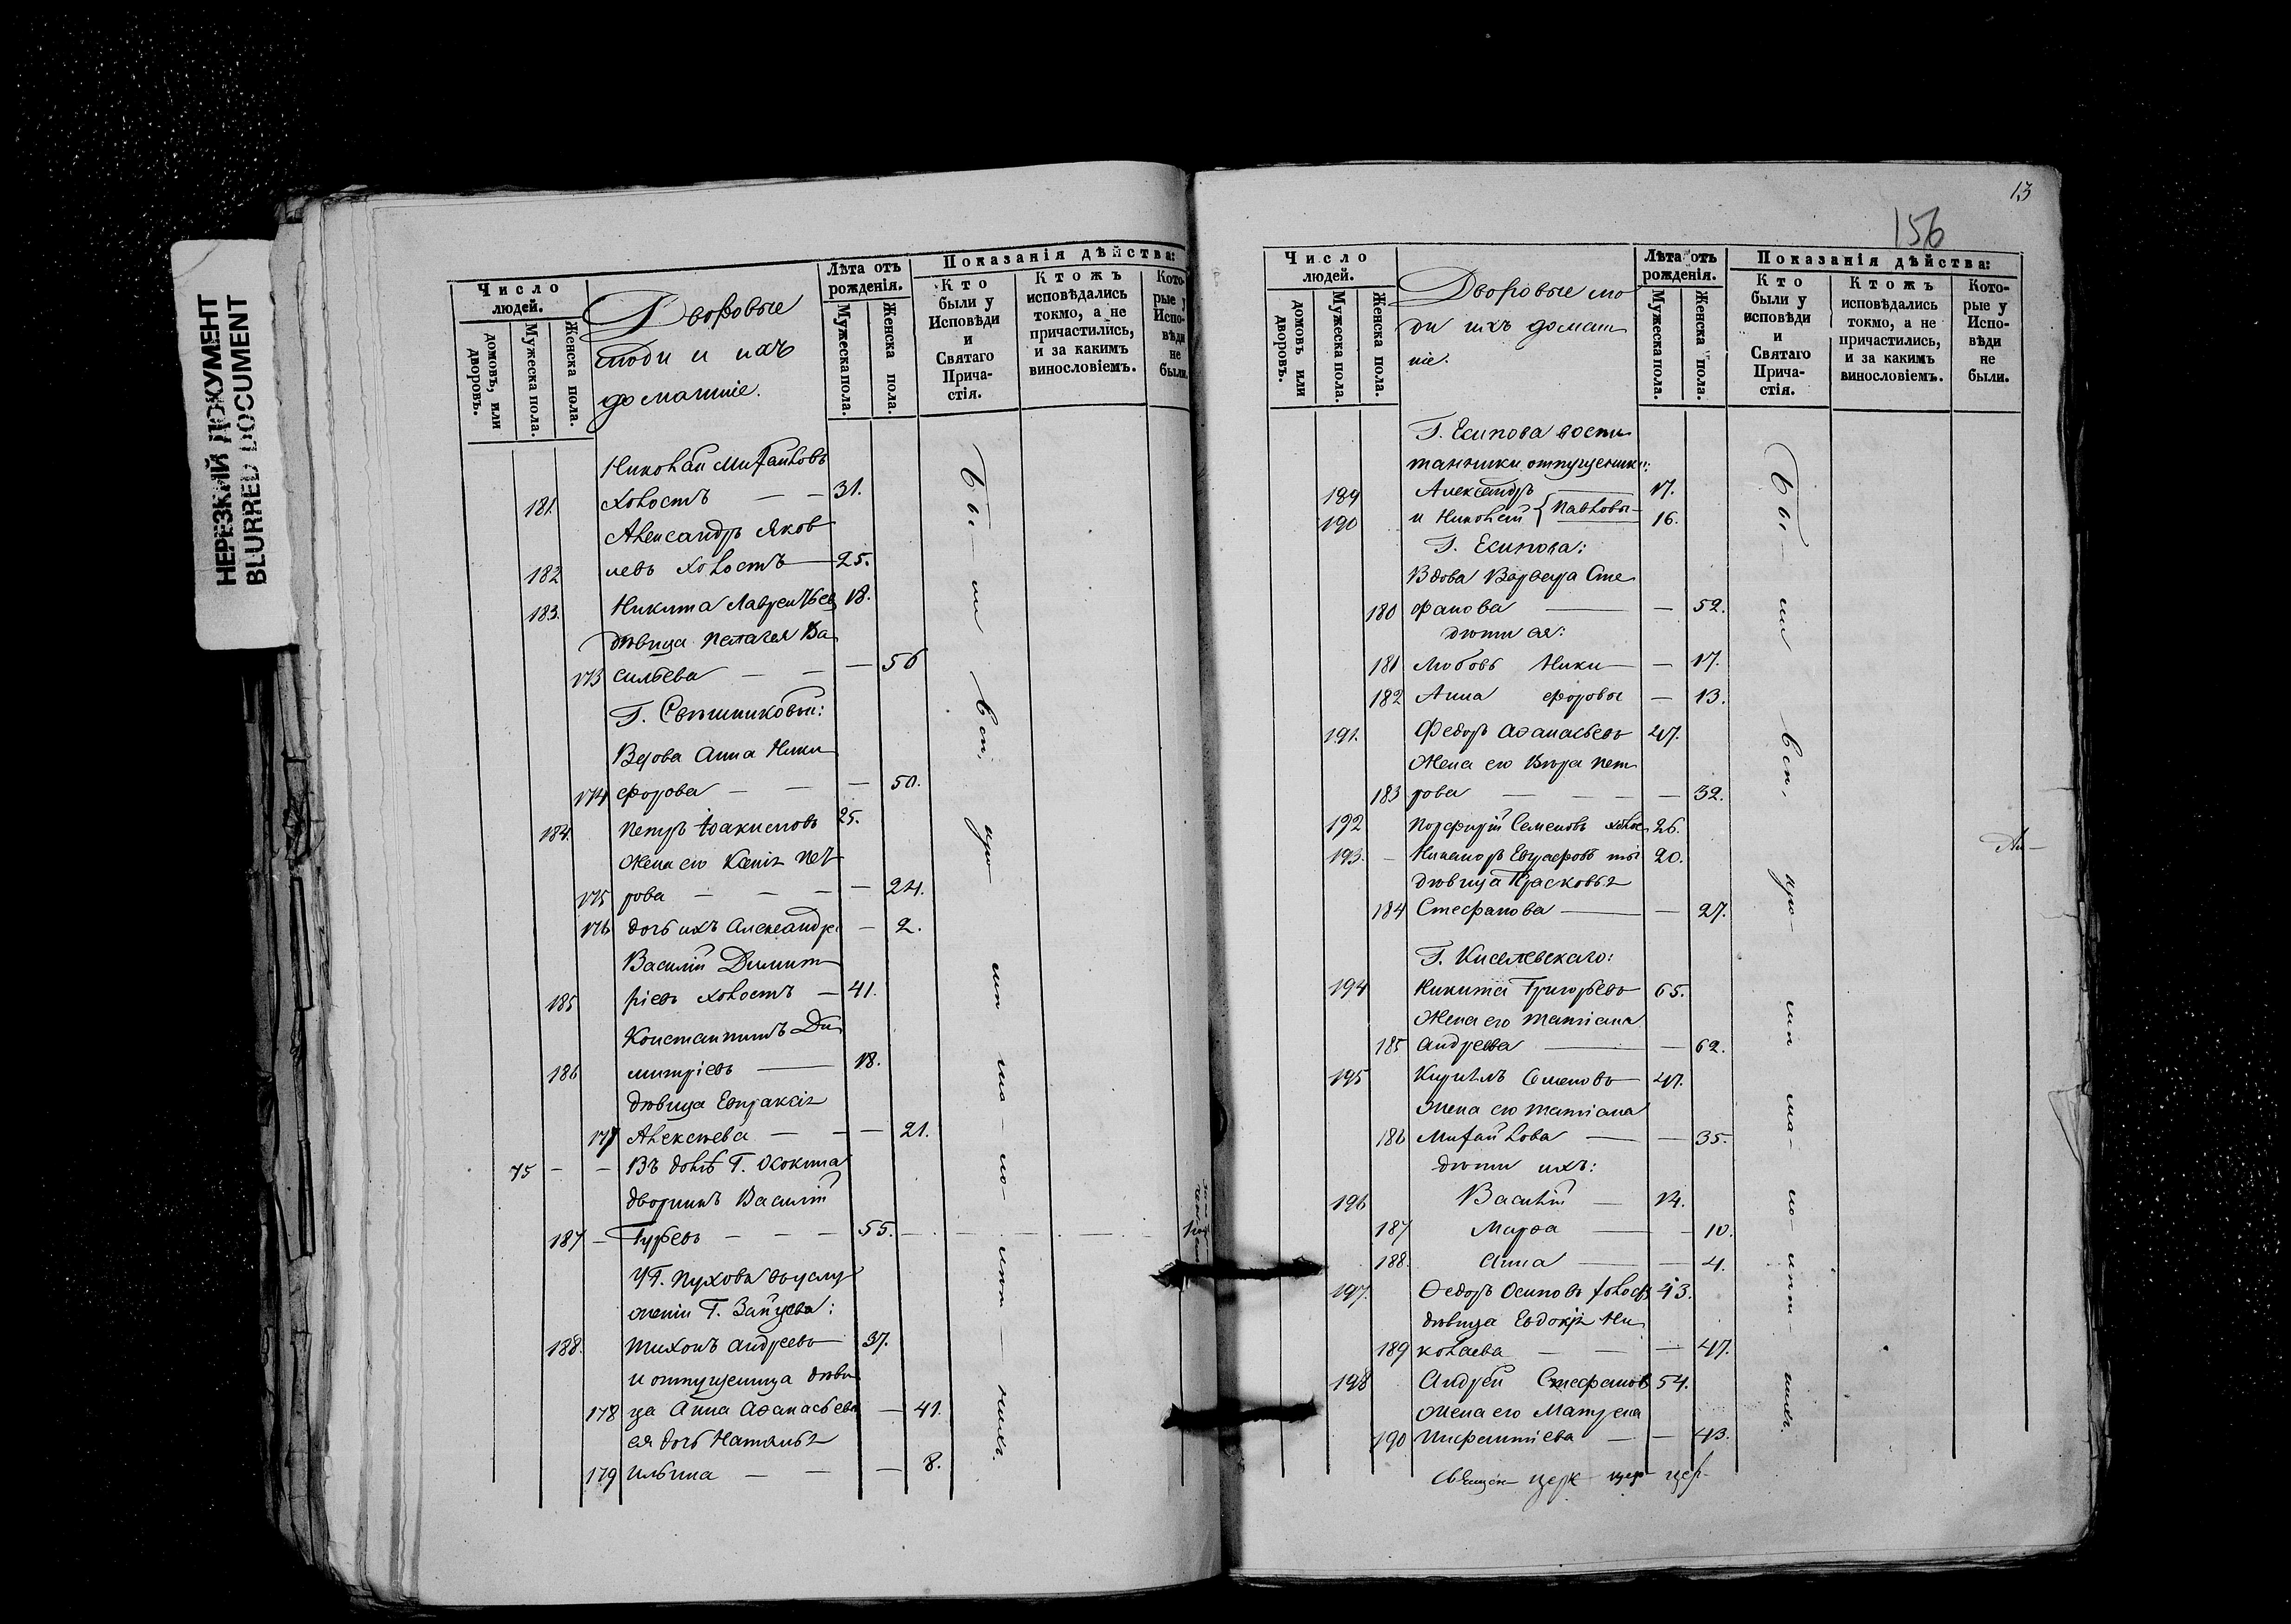 НЕРЕЗКИЙ ДОКУМЕНТ
BLURRED DOCUMENT
Число людей.
домовъ, или дворовъ.
Мужеска пола.
Женска пола.
Дворовые
люди и ихъ
домашніе.
Лѣта отъ рожденія.
Мужеска пола.
Женска пола.
Показанія дѣйства:
Кто были у Исповѣди и Святаго Прича-стія.
Ктожъ исповѣдались токмо, а не причастились, и за какимъ винословіемъ.
Кото-рые у Испо-вѣди не были.
Николай Михайловъ
181. холостъ — — 31.
Александръ Яков
182 левъ холостъ — 25.
183. Никита Лаврентьев 18.
дѣвица Пелагея Ва
173 сильева — — — 56
Г. Свѣшниковой:
Вдова Анна Ники
174 форова — — — 50.
184. Петръ Іоакимовъ 25.
Жена его Ксенія Пет
175 рова — — — — 24.
176 дочь ихъ Александра — 2.
Василій Димит
185 ріевъ холостъ — 41.
Константинъ Ди
186 митріевъ — 18.
дѣвица Евпраксія
177 Алексѣева — — — 21.
75 — — Въ домѣ Г.
дворникъ Василій
187 — Гурьевъ — — — 55.
У Г. Пухова въ услу
женіи Г. Зайцева:
188. Тихонъ Андреевъ 37.
и отпущеница дѣви
178 ца Анна Аѳанасьева — 41.
ея дочь Наталья
179 Ильина — — — 8.
Бы — ли — въ исп. при — — — — чихъ.
13
156
Число людей.
домовъ или дворовъ.
Мужеска пола.
Женска пола.
Дворовые лю
ди ихъ домаш
ніе.
Лѣта отъ рожденія.
Мужеска пола.
Женска пола.
Показанія дѣйства:
Кто были у исповѣди и Святаго Прича-стія.
Ктожъ исповѣдались токмо, а не причастились, и за какимъ винословіемъ.
Кото-рые у Испо-вѣди не были.
Г. Есипова воспи
танники отпущеники:
189 Александръ — 17.
190 и Николай { Павловы — 16.
Г. Есипова:
Вдова Варвара Сте
180 фанова — — 52.
дѣти ея:
181 Любовь Ники — — 17.
182 Анна форовы — 13.
191. Федоръ Аѳанасьевъ 47.
Жена его Вѣра Пет
183 рова — — — — 32.
192 Порфирій Семеновъ холос 26.
193. — Никаноръ Евграфовъ 20.
дѣвица Прасковья
184 Стефанова — — 27.
Г. Киселевскаго:
194 Никита Григорьевъ 65.
Жена его Татіана
185 Андреева — — 62.
195 Кирилъ Семеновъ 47.
Жена его Татіана
186 Михайлова — — 35.
дѣти ихъ:
196 Василій — 14.
187 Марѳа — — 10.
188. Анна — — 4.
197. Ѳедоръ Осиповъ холостъ 43.
дѣвица Евдокія Ни
189 колаева — — — 47.
198 Андрей Стефановъ 54.
Жена его Матрена
190 Инфантіева — — 43.